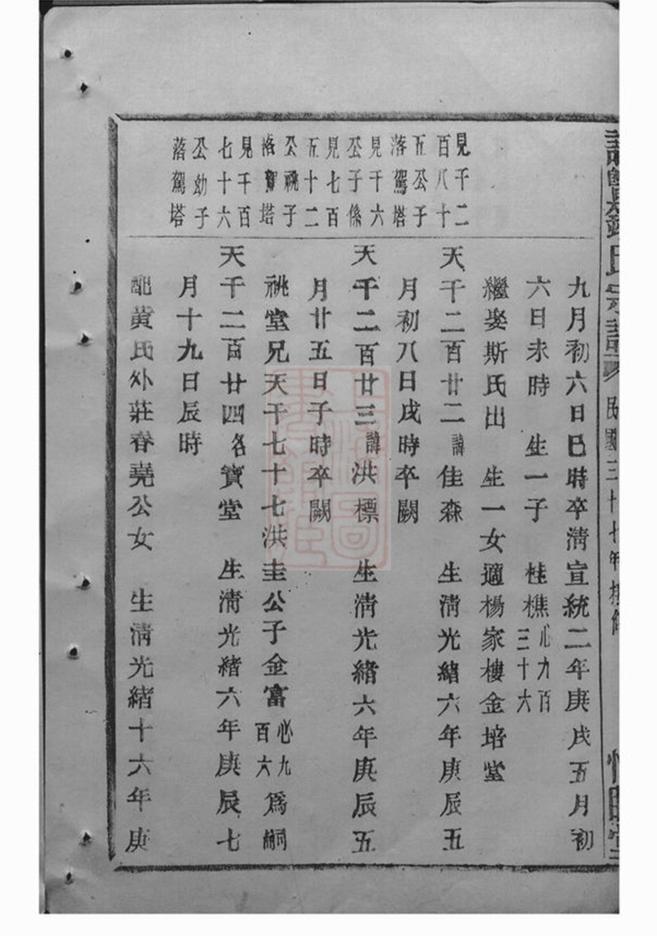 氏宗譜
民國三十七年
九月初六日巳時卒淸宣統二年庚戌五月初
六日未時 生一子 桂樵心九百三十六
繼娶斯氏出 生一女適楊家樓金培堂
天千二百廿二諱佳森 生淸光緖六年庚辰五
月初八日戌時卒闕
天千二百廿三諱洪標 生淸光緖六年庚辰五
月廿五日子時卒闕
祧堂兄天千七十七洪圭公子金富心九百六爲嗣
天千二百廿四名寶堂 生淸光緖六年庚辰七
月十九日辰時
配黃氏外莊春堯公女 生淸光緖十六年庚
見千二
百八十
五公子
落駕塔
見千六
公子係
見七百
五十二
公祧子
落駕塔
見千百
七十六
公幼子
落駕塔